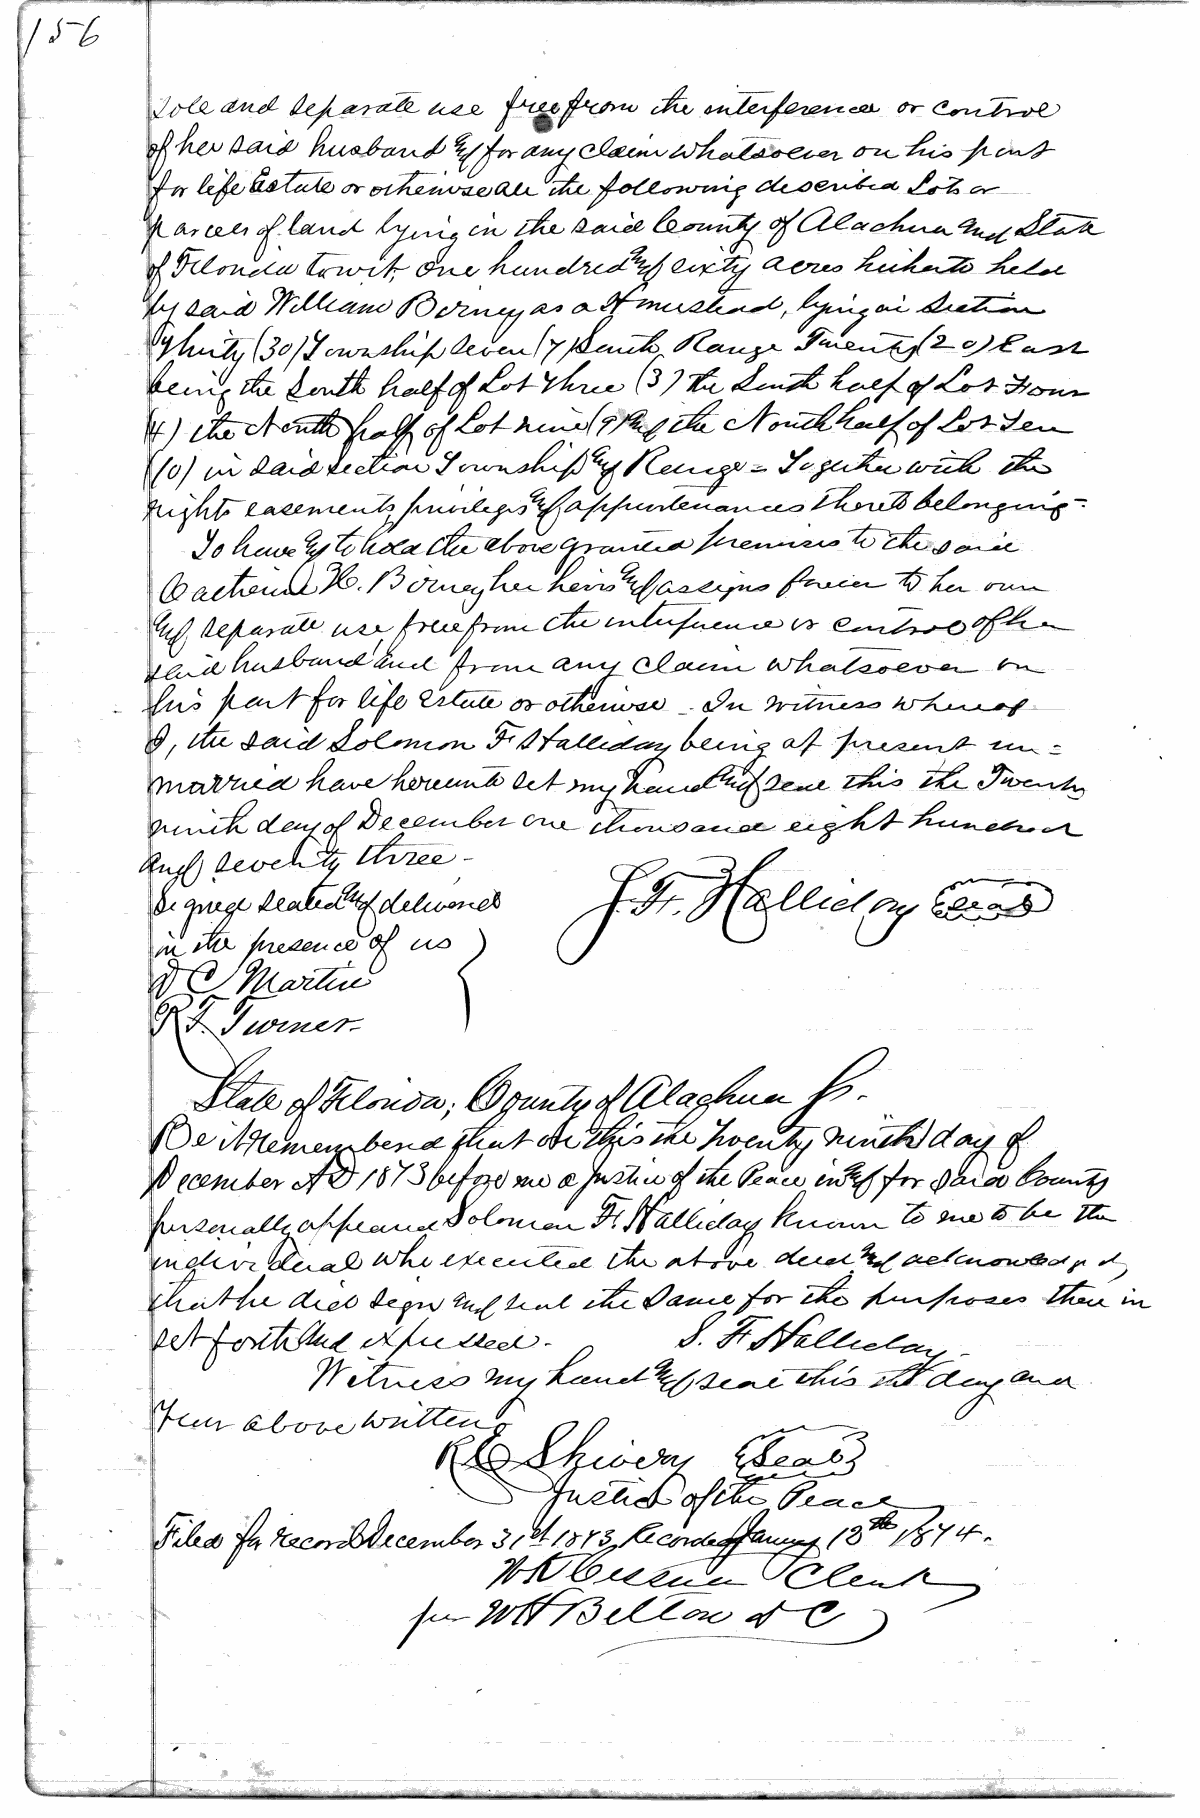 156
sole and separate use free from the interference or control
of her said husband and for any claim whatsoever on his part
for life Estate or otherwise all the following described Lots or
parcels of land lying in the said County of Alachua and State
of Florida towit, One hundred and sixty acres hitherto held
by said William Birney as a Homestead, lying in Section
Thirty (30) Township Seven (7) South, Range Twenty (20) East
being the South half of Lot Three (3) the South half of Lot Four
(4) the North half of Lot nine (9) and the North half of Lot Ten
(10) in said Section Township and Range = Together with the
rights easements, privileges and appurtenances thereto belonging -
To have and to hold the above granted premises to the said
Catherine H. Birney her heirs and assigns forever to her own
and separate use, free from the interference or control of her
said husband and from any claim whatsoever on
his part for life Estate or otherwise - In witness whereof
I, the said Solomon F. Halliday being at present un=
married have hereunto set my hand and seal this the Twenty
ninth day of December one thousand eight hundred
and seventy three -
Signed sealed and delivered
in the presence of us
D C Martin
R F. Turner -
S. F. Halliday Seal
State of Florida, County of Alachua Ss.
Be it remembered that on this the Twenty ninth day of
December AD 1873 before me a Justice of the Peace in and for said County
personally appeared Solomon F. Halliday known to me to be the
individual who executed the above deed and acknowledged,
that he did sign and seal the same for the purposes therein
set forth and expressed. S. F. Halliday -
Witness my hand and seal this the day and
Year above written
R C Shivery Seal
Justice of the Peace
Filed for record December 31st 1873, Recorded January 13th 1874.
W K Cessna Clerk
per W H Belton D C